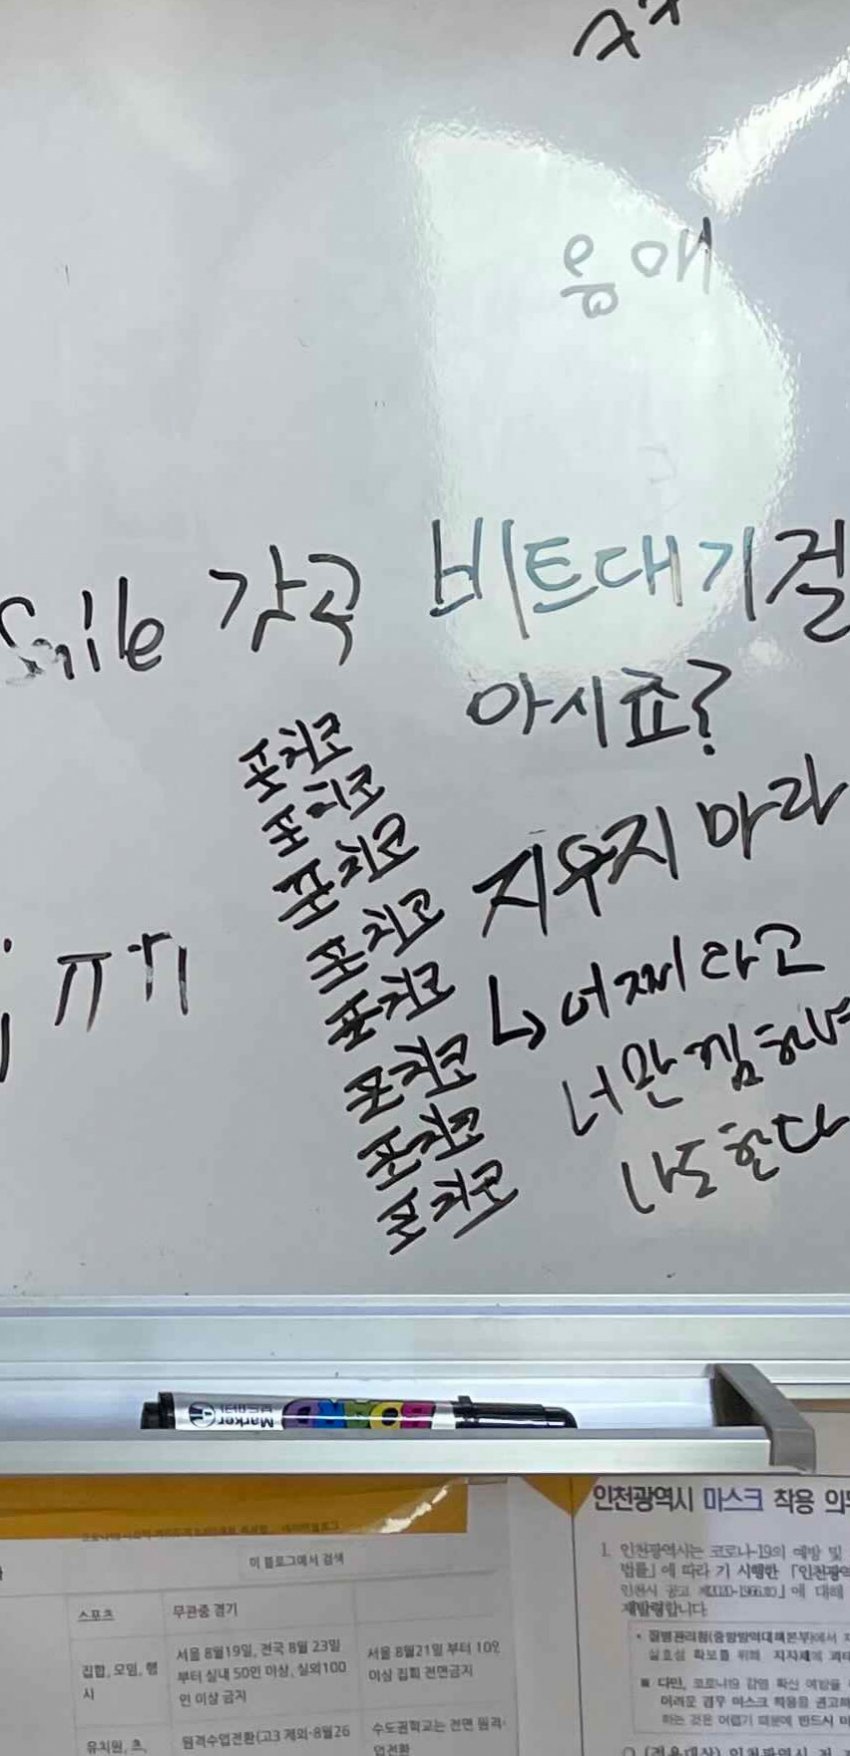 ㅋㅋ
음애
Smile 갓곡 비트대기절
아시죠?
포차코
포차코
포차코
포차코
포차코
포차코
포차코
포차코
지우지 마라
↳ 어쩌라고
너만
사는한다
ㅠㅠ
Marker
BOARD
이 블로그에서 검색
스포츠 무관중 경기
집합, 모임, 행사
서울 8월19일, 전국 8월 23일
부터 실내 50인 이상, 실외100
인 이상 금지
서울 8월21일 부터 10인
이상 집회 전면금지
유치원, 초,
원격수업전환(고3 제외-8월26
수도권학교는 전면 원격
업전환
인천광역시 마스크 착용 의무
1. 인천광역시는 코로나-19의 예방 및
법률」에 따라 기 시행한 「인천광역
인천시 공고 제2020-1966호)」에 대해
재발령합니다
• 질병관리청(중앙방역대책본부)에서
실효성 확보를 위해 지자체에 과태
■ 다만, 코로나19 감염 확산 예방을
어려운 경우 마스크 착용을 권고하
하는 것은 어렵기 때문에 반드시 마